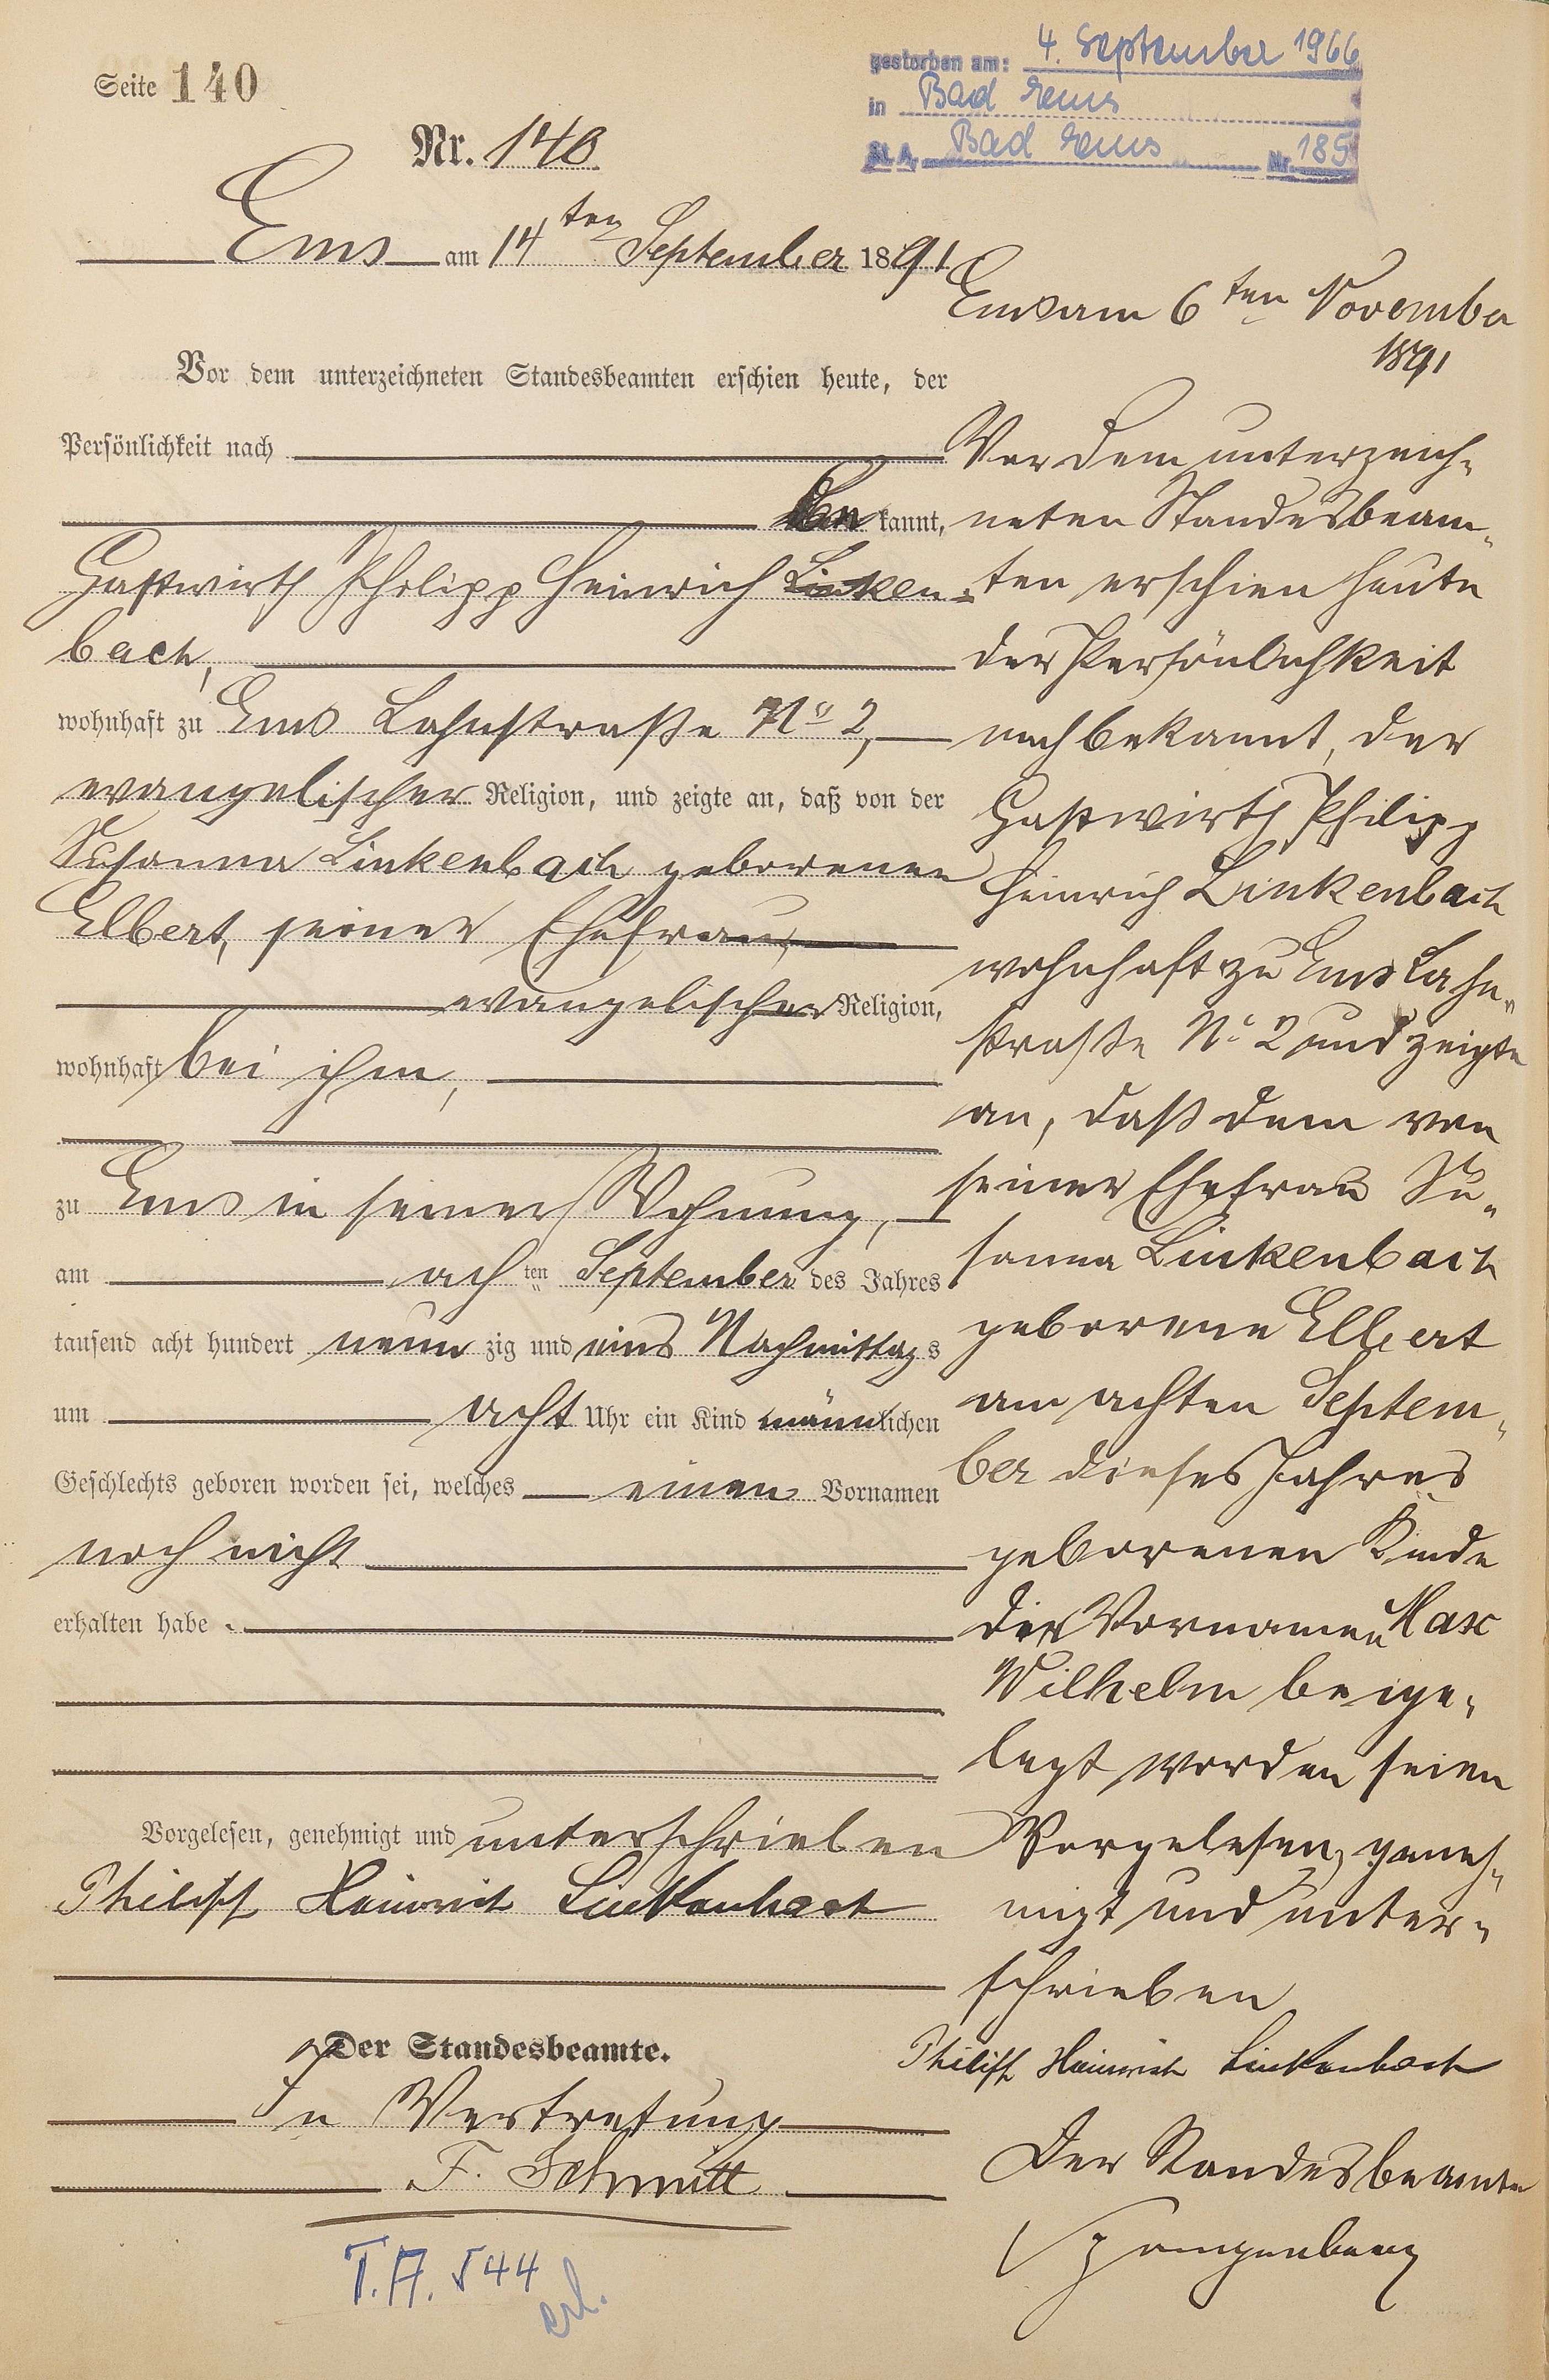 Seite 140
gestorben am: 4. September 1966
in Bad Ems
St. A. Bad Ems Nr. 185
Nr. 140
Ems am 14ten September 1891
Vor dem unterzeichneten Standesbeamten erschien heute, der
Persönlichkeit nach
kannt,
Gastwirth Philipp Heinrich Linken-
bach,
wohnhaft zu Ems Lahnstraße No 2,
evangelischer Religion, und zeigte an, daß von der
Susanna Linkenbach geborenen
Elbert, seiner Ehefrau,
evangelischer Religion,
wohnhaft bei ihm,
zu Ems in seiner Wohnung,
am achten September des Jahres
tausend acht hundert neunzig und eins Nachmittags
um acht Uhr ein Kind männlichen
Geschlechts geboren worden sei, welches einen Vornamen
noch nicht
erhalten habe.
Vorgelesen, genehmigt und unterschrieben
Philipp Heinrich Linkenbach
Der Standesbeamte.
In Vertretung
F. Schmitt
T.A. 544
erl.
Ems am 6ten November
1891
Vor dem unterzeich-
neten Standesbeam-
ten erschien heute
der Persönlichkeit
nach bekannt, der
Gastwirth Philipp
Heinrich Linkenbach
wohnhaft zu Ems Lahn-
straße No 2 und zeigte
an, daß dem von
seiner Ehefrau Su-
sanna Linkenbach
geborene Elbert
am achten Septem-
ber dieses Jahres
geborenen Kinde
die Vornamen Max
Wilhelm beige-
legt worden seien
Vorgelesen, geneh-
migt und unter-
schrieben
Philipp Heinrich Linkenbach
Der Standesbeamte